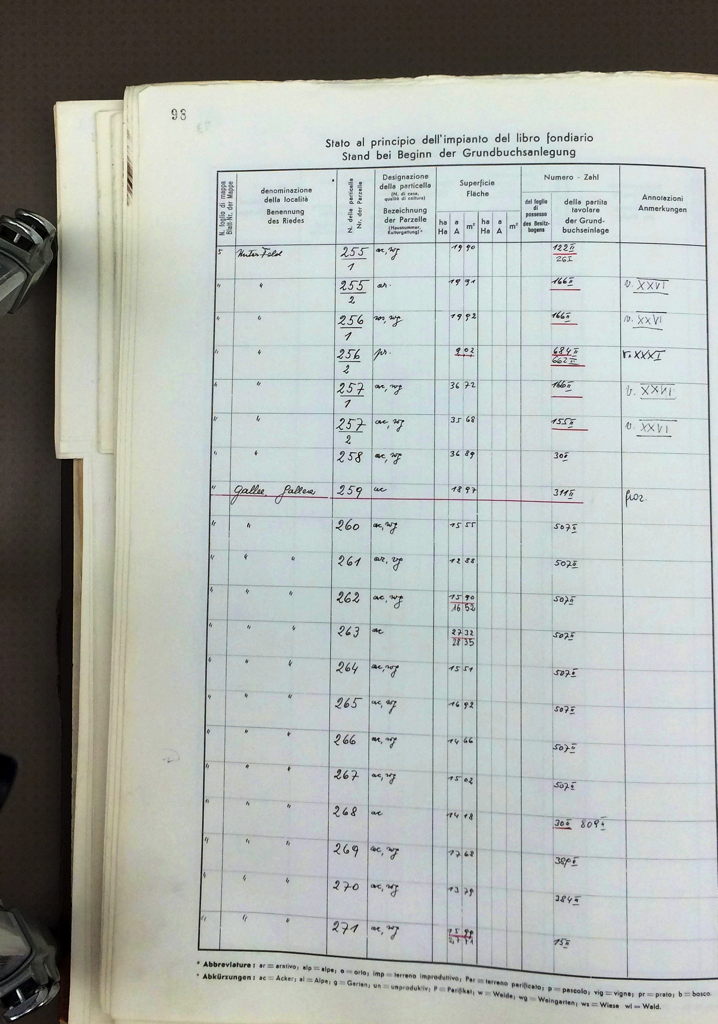 93
Stato al principio dell'impianto del libro fondiario
Stand bei Beginn der Grundbuchsanlegung
N. foglio di mappa Blatt-Nr. der Mappe
denominazione della località Benennung des Riedes
N. della particella Nr. der Parzelle
Designazione della particella (N. di casa, qualità di coltura) Bezeichnung der Parzelle (Hausnummer, Kulturgattung)*
Superficie Fläche
ha Ha a A m² ha Ha a A m²
Numero - Zahl
del foglio di possesso des Besitzbogens
della partita tavolare der Grundbuchseinlage
Annotazioni Anmerkungen
5 Unter Feld 255/1 ac, wg 19 90 122 II 26 I
" " 255/2 ar. 19 91 166 II v. XXVI
" " 256/1 wg 19 92 166 II v. XXVI
" " 256/2 pr. 9 02 684 II 662 II v. XXXI
" " 257/1 ac, wg 36 72 166 II v. XXVI
" " 257/2 ac, wg 35 68 155 II v. XXVI
" " 258 ac, wg 36 89 30 II
" 259 ac 18 97 311 II
" " 260 ac, wg 15 55 507 II
" " " 261 12 88 507 II
" " " 262 ac, wg 15 90 16 52 507 II
" " " 263 ac 27 32 28 35 507 II
" " " 264 ac, wg 15 51 507 II
" " " 265 ac, wg 16 92 507 II
" " " 266 ac, wg 14 66 507 II
" " " 267 ac, wg 15 02 507 II
" " " 268 ac 14 18 30 II 809 II
" " " 269 ac, wg 17 68
" " " 270 ac, wg 13 79 384 II
" " " 271 ac, wg 15 II
* Abbreviature: ar = arativo; alp = alpe; o = orto; imp = terreno improduttivo; Par = terreno parificato; p = pascolo; vig = vigna; pr = prato; b = bosco
* Abkürzungen: ac = Acker; al = Alpe; g = Garten; un = unproduktiv; P = Parifikat; w = Weide; wg = Weingarten; ws = Wiese wl = Wald.